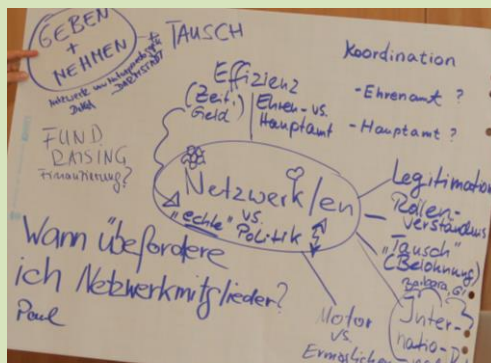 GEBEN
+
NEHMEN
+ TAUSCH
DARMSTADT
Koordination
- Ehrenamt ?
- Hauptamt ?
Effizienz
(Zeit,
Geld)
Ehren- vs.
Hauptamt
FUND
RAISING
Finanzierung?
Netzwerk/en
"echte" vs.
Politik
Legitimation
Rollen-
verständnis
"Tausch"
(Belohnung)
Barbara,
Wann übefordere
ich Netzwerkmitglieder?
Paul
Motor
vs.
Inter-
natio-